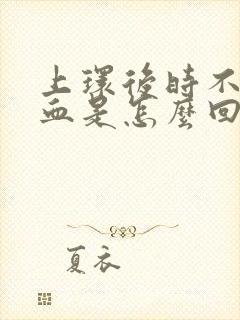 上環後時不
血是怎麼回
夏衣